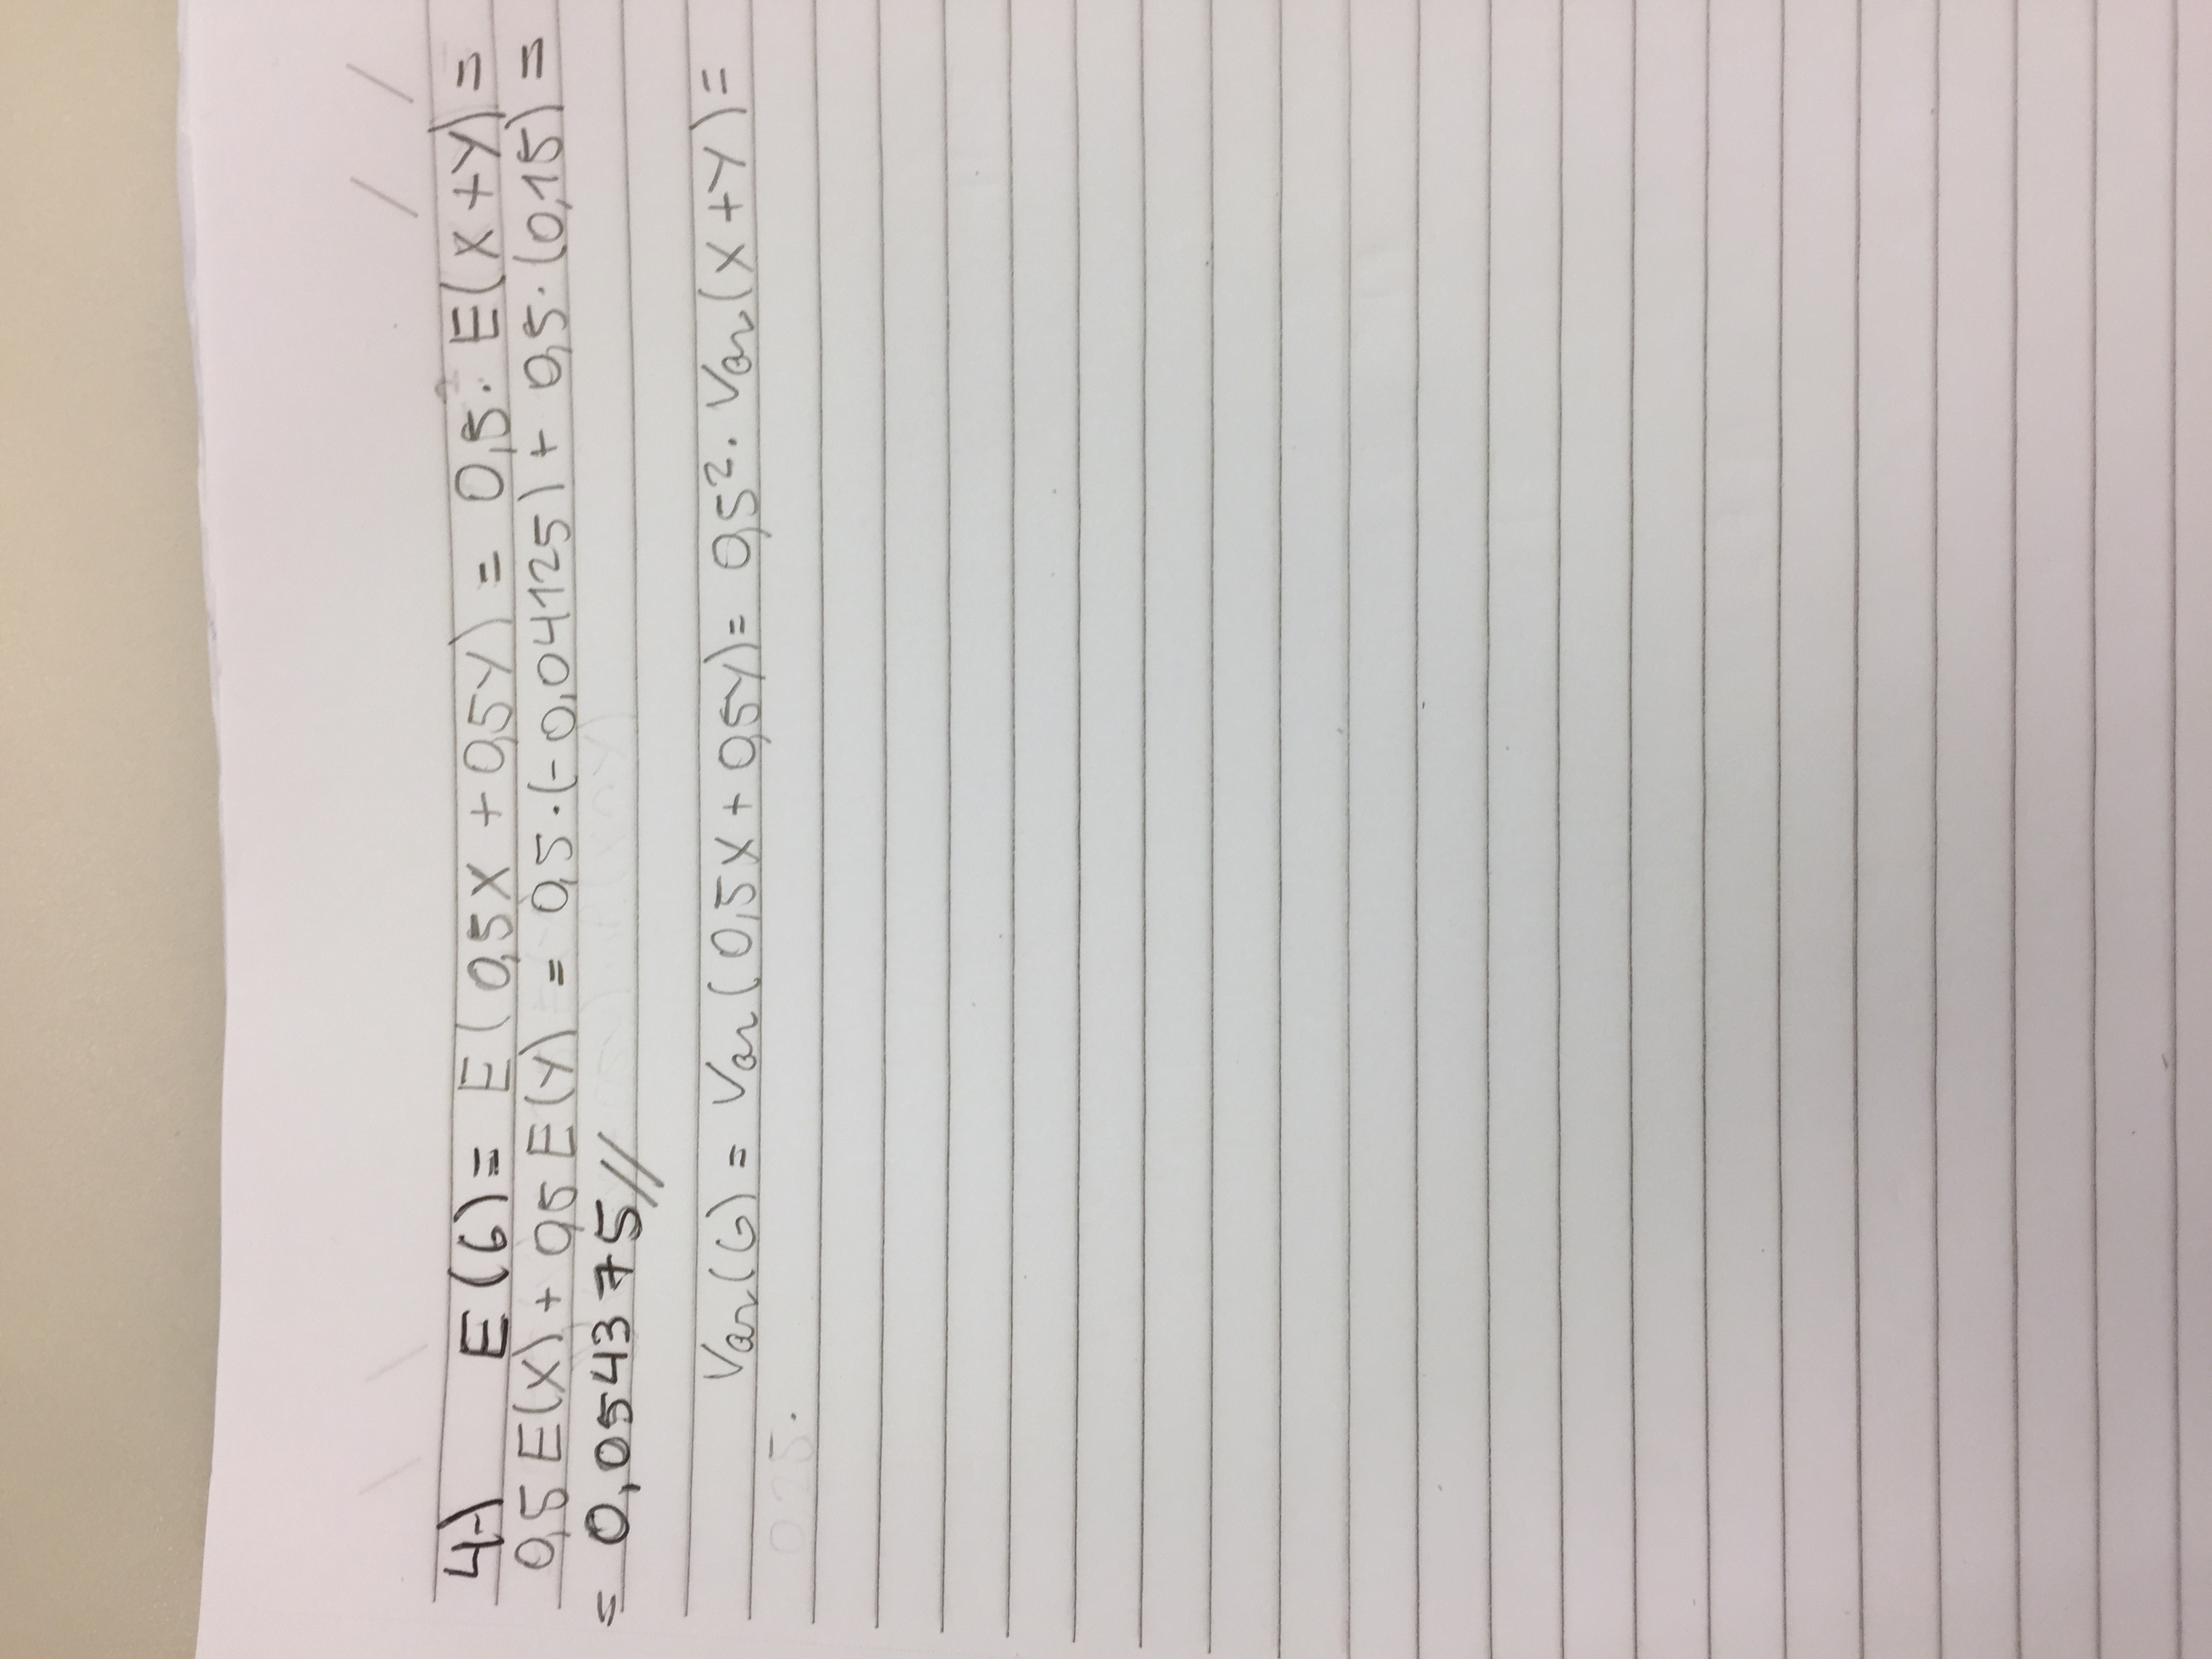 4-) E(G) = E(0,5X + 0,5Y) = 0,5. E(X+Y) =
0,5 E(X) + 0,5 E(Y) = 0,5.(-0,04125) + 0,5.(0,15) =
= 0,054375//
Var(G) = Var(0,5X + 0,5Y) = 0,5². Var(X+Y) =
0,25.